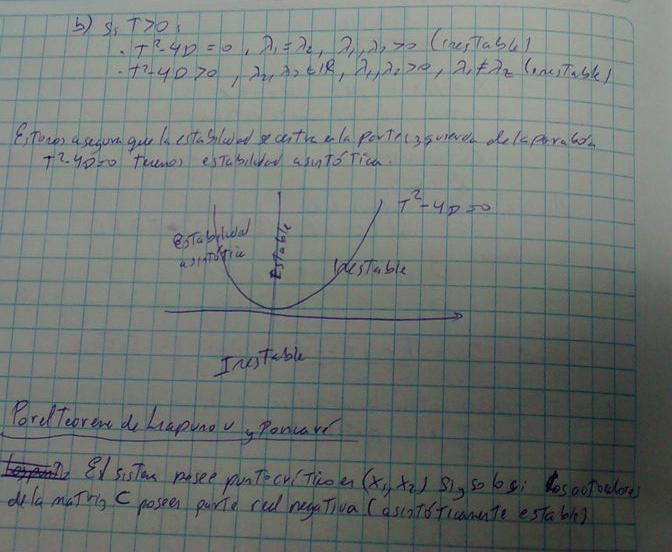 b) Si T>0:
· T²-4D=0, λ₁=λ₂, λ₁,λ₂>0 (inestable)
· T²-4D>0, λ₁,λ₂∈ℝ, λ₁,λ₂>0, λ₁≠λ₂ (inestable)
Esto nos asegura que la estabilidad se centra en la parte izquierda de la parabola
T²-4D=0 Tenemos estabilidad asintótica.
T²-4D=0
Estabilidad
asintótica
Estable
Inestable
Inestable
Por el Teorema de Liapunov y Poincaré
El sistema posee punto crítico en (x₁,x₂) si y solo si los autovalores
de la matriz C poseen parte real negativa (asintóticamente estable)